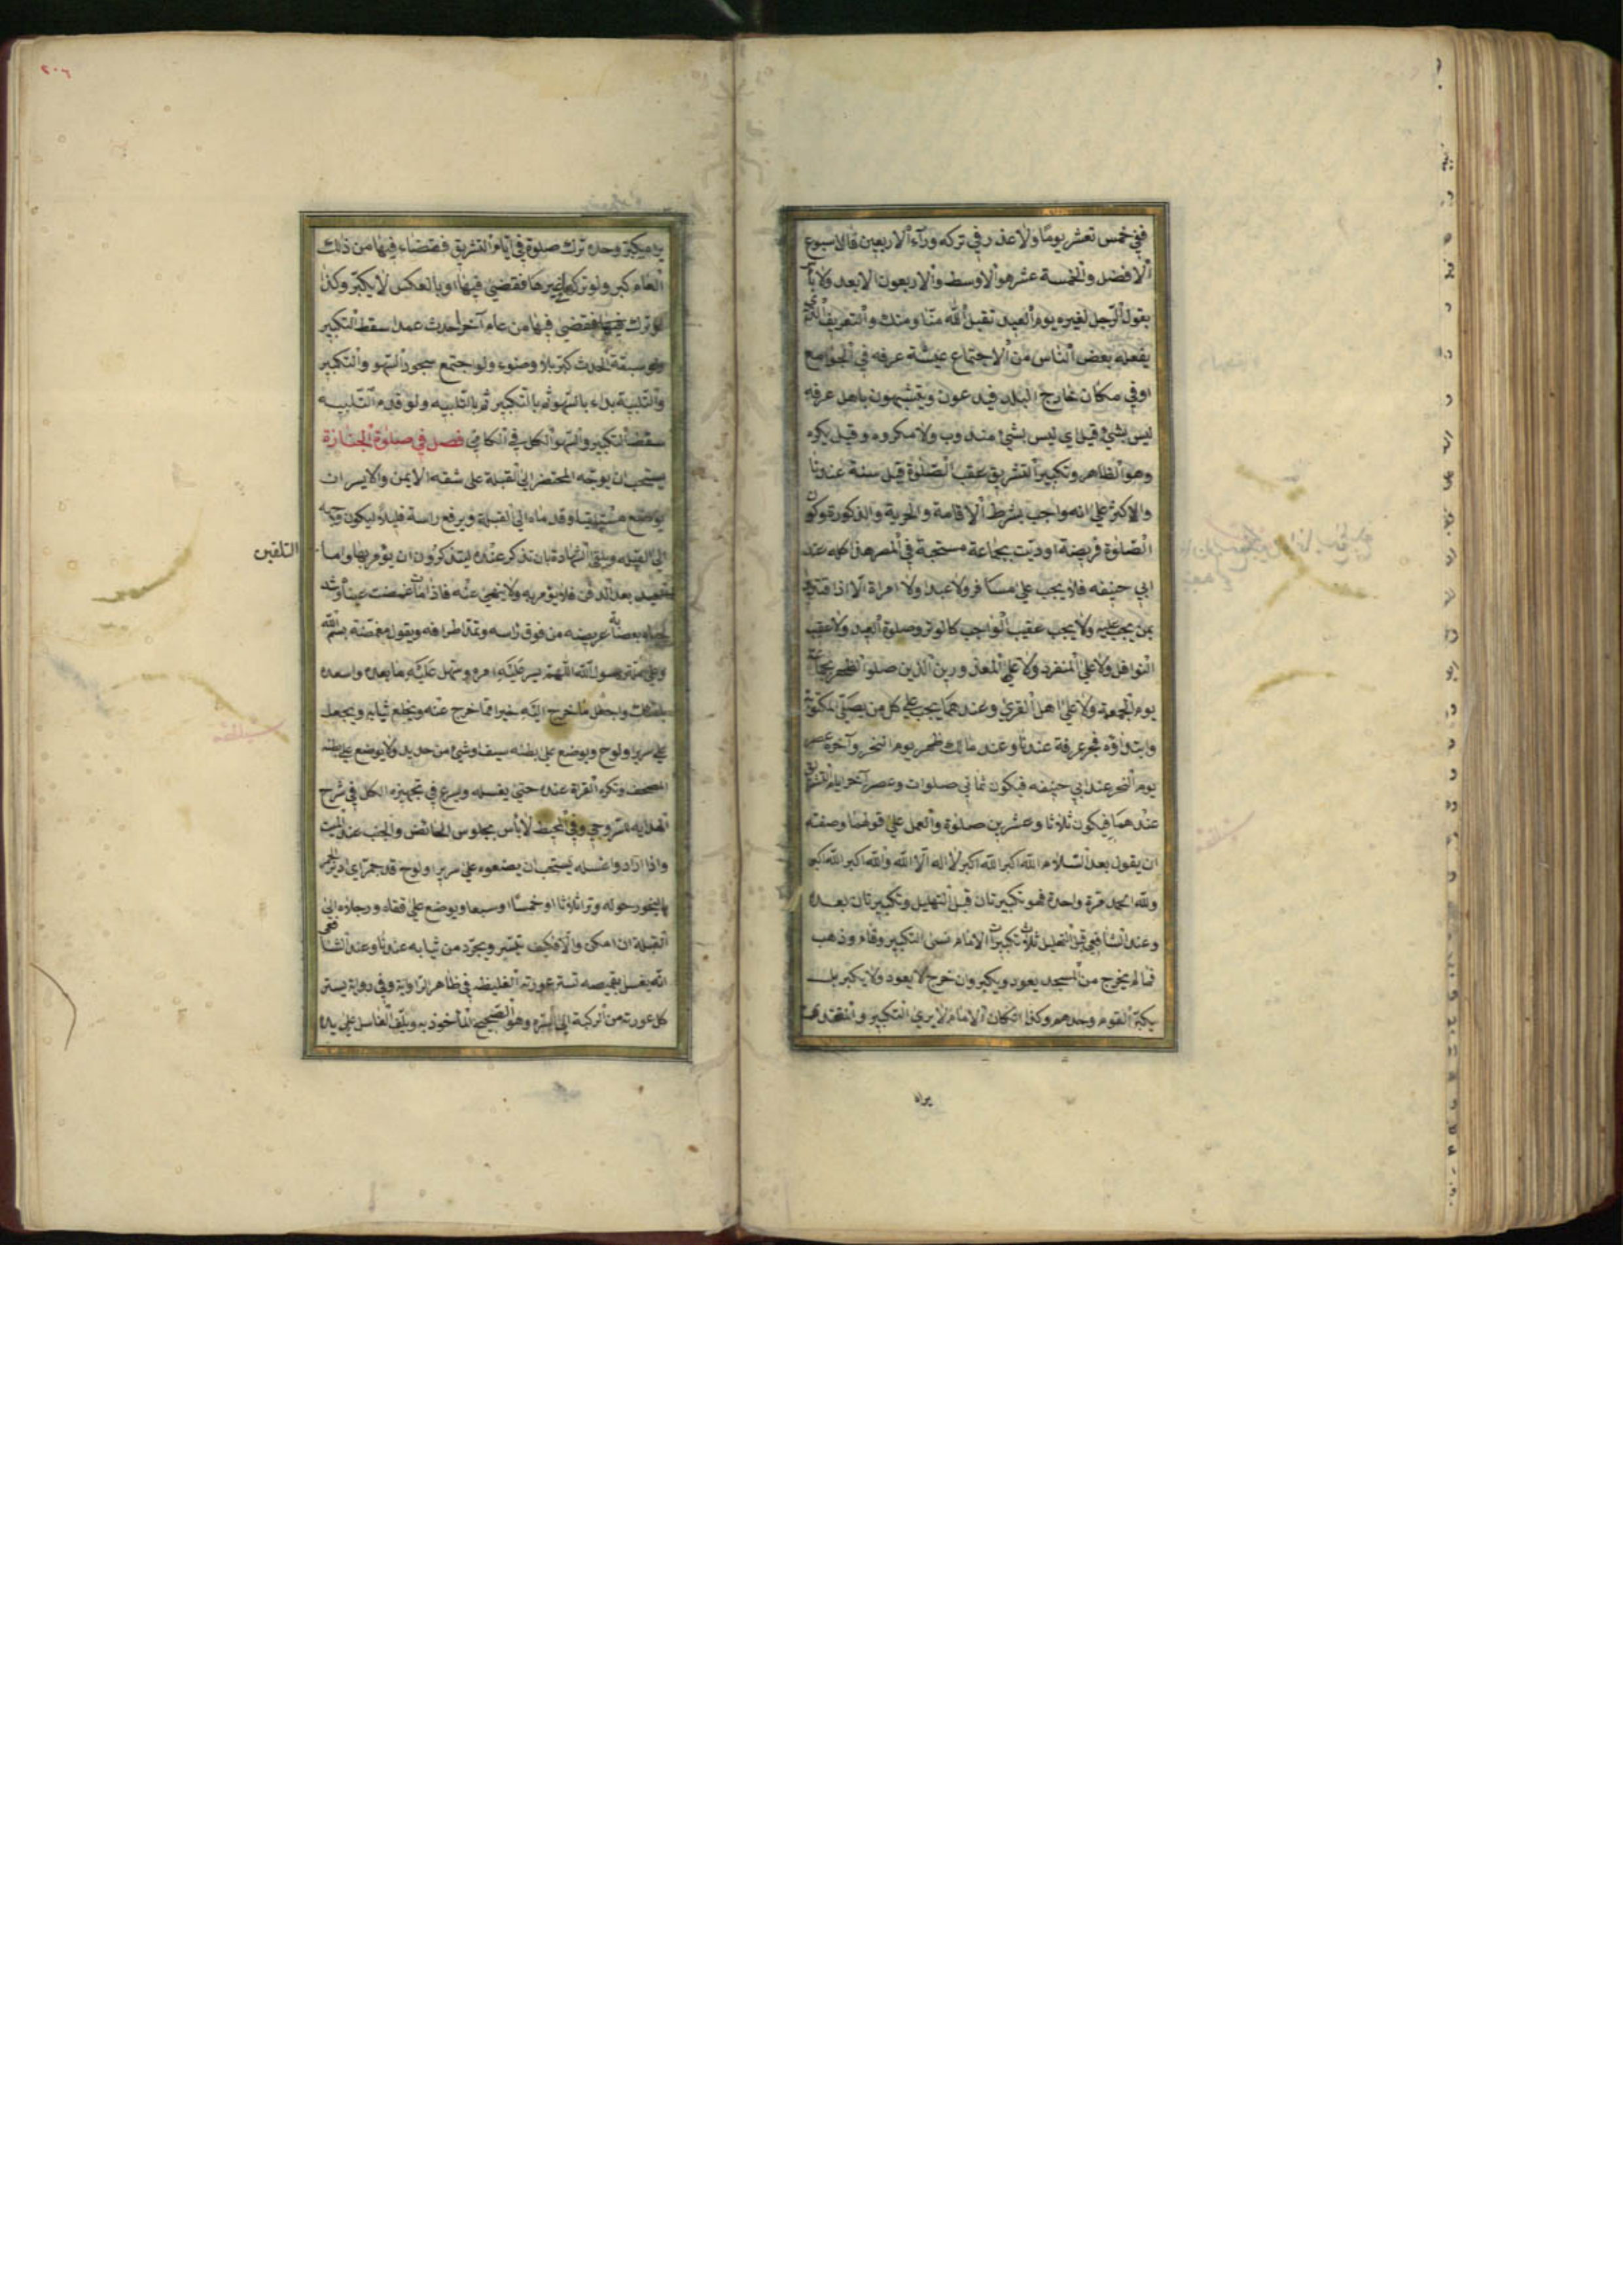 ففي خمس عشر يوما ولا عذر في تركه ورآء الاربعين فالاسبوع
الافضل والخمسة عشر هو الاوسط والاربعون الابعد ولا باس
بقول الرجل لغيره يوم العيد تقبل الله منا ومنك والتعريف الذي
يفعله بعض الناس من الاجتماع عشية عرفه في الجوامع
او في مكان خارج البلد فيدعون ويتشبهون باهل عرفه
ليس بشئ قيل اي ليس بشئ مندوب ولا مكروه وقيل يكره
وهو الظاهر وتكبير التشريق عقب الصلوة قيل سنة عندنا
والاكثر على انه واجب بشرط الاقامة والحرية والذكورة وكون
الصلوة فريضة اديت بجماعة مستحبة في المصر هذا كله عند
ابي حنيفه فلا يجب على مسافر ولا عبد ولا امراة الا اذا اقتدي
بمن يجب عليه ولا يجب عقيب الواجب كالوتر وصلوة العيد ولا عقيب
النوافل ولا على المنفرد ولا على المعذورين الذين صلوا الظهر بجماعة
يوم الجمعة ولا على اهل القرى وعندهما يجب على كل من يصلي المكتوبة
وابتداؤه فجر عرفة عندنا وعند مالك ظهر يوم النحر وآخره عصر
يوم النحر عند ابي حنيفه فيكون ثماني صلوات وعصر آخر ايام التشريق
عندهما فيكون ثلاثا وعشرين صلوة والعمل على قولهما وصفته
ان يقول بعد السلام الله اكبر الله اكبر لا اله الا الله والله اكبر الله اكبر
ولله الحمد مرة واحدة فهو تكبيرتان قبل التهليل وتكبيرتان بعده
وعند الشافعي قبل التهليل ثلاث تكبيرات الامام نسى التكبير وقام وذهب
فما لم يخرج من المسجد يعود ويكبر وان خرج لا يعود ولا يكبر بل
يكبر القوم وحدهم وكذا ان كان الامام لا يرى التكبير والمقتدي
يراه
٢٠٦
يراه يكبر وحده ترك صلوة في ايام التشريق فقضاء فيها من ذلك
العام كبر ولو تركها لغيرها فقضي فيها او بالعكس لا يكبر وكذا
لو ترك فيها فقضي فيها من عام آخر احدث عمدا سقط التكبير
ولو سبقه الحدث كبر بلا وضوء ولو اجتمع سجود السهو والتكبير
والتلبية بداء بالسهو ثم بالتكبير ثم بالتلبيه ولو قدم التلبيه
سقط التكبير والسهو الكل في الكافي فصل في صلوة الجنازة
يستحب ان يوجه المحتضر الى القبلة على شقه الايمن والايسر ان
يوضع مستلقيا وقدماه الى القبلة ويرفع راسه قليلا ليكون وجهه
الى القبله ويلقن الشهادة بان تذكر عنده ليتذكر دون ان يؤمر بها واما
التلقين
بعد الدفن فلا يؤمر به ولا ينهى عنه فاذا مات غمضت عيناه وشد
لحياه بعصابة عريضه من فوق راسه وتمد اطرافه ويقول مغمضه بسم الله
وعلى ملة رسول الله اللهم يسر عليه امره وسهل عليه ما بعده واسعده
بلقائك واجعل ما خرج اليه خيرا مما خرج عنه ويخلع ثيابه ويجعل
على سرير او لوح ويوضع على بطنه سيف او شئ من حديد ولا يوضع على بطنه
المصحف وتكره القراة عنده حتى يغسله ويسرع في تجهيزه الكل في شرح
الهدايه للسروجي وفي المحيط لا باس بجلوس الحائض والجنب عند الميت
واذا ارادوا غسله يستحب ان يضعوه على سرير او لوح قد جمر اي
بالبخور حوله وترا ثلاثا او خمسا او سبعا ويوضع على قفاه ورجلاه الى
القبلة ان امكن والا فكيف تيسر ويجرد من ثيابه عندنا وعند الشافعي
انه يغسل بقميصه تستر عورته الغليظه في ظاهر الرواية وفي رواية يستر
كل عورته من الركبة الى السره وهو الصحيح المأخوذ به ويلف الغاسل على يده